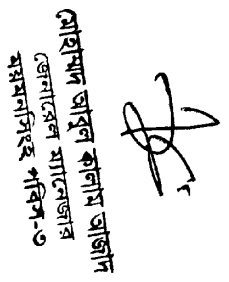 মোহাম্মদ আবুল কালাম আজাদ
জেনারেল ম্যানেজার
ময়মনসিংহ পবিস-৩